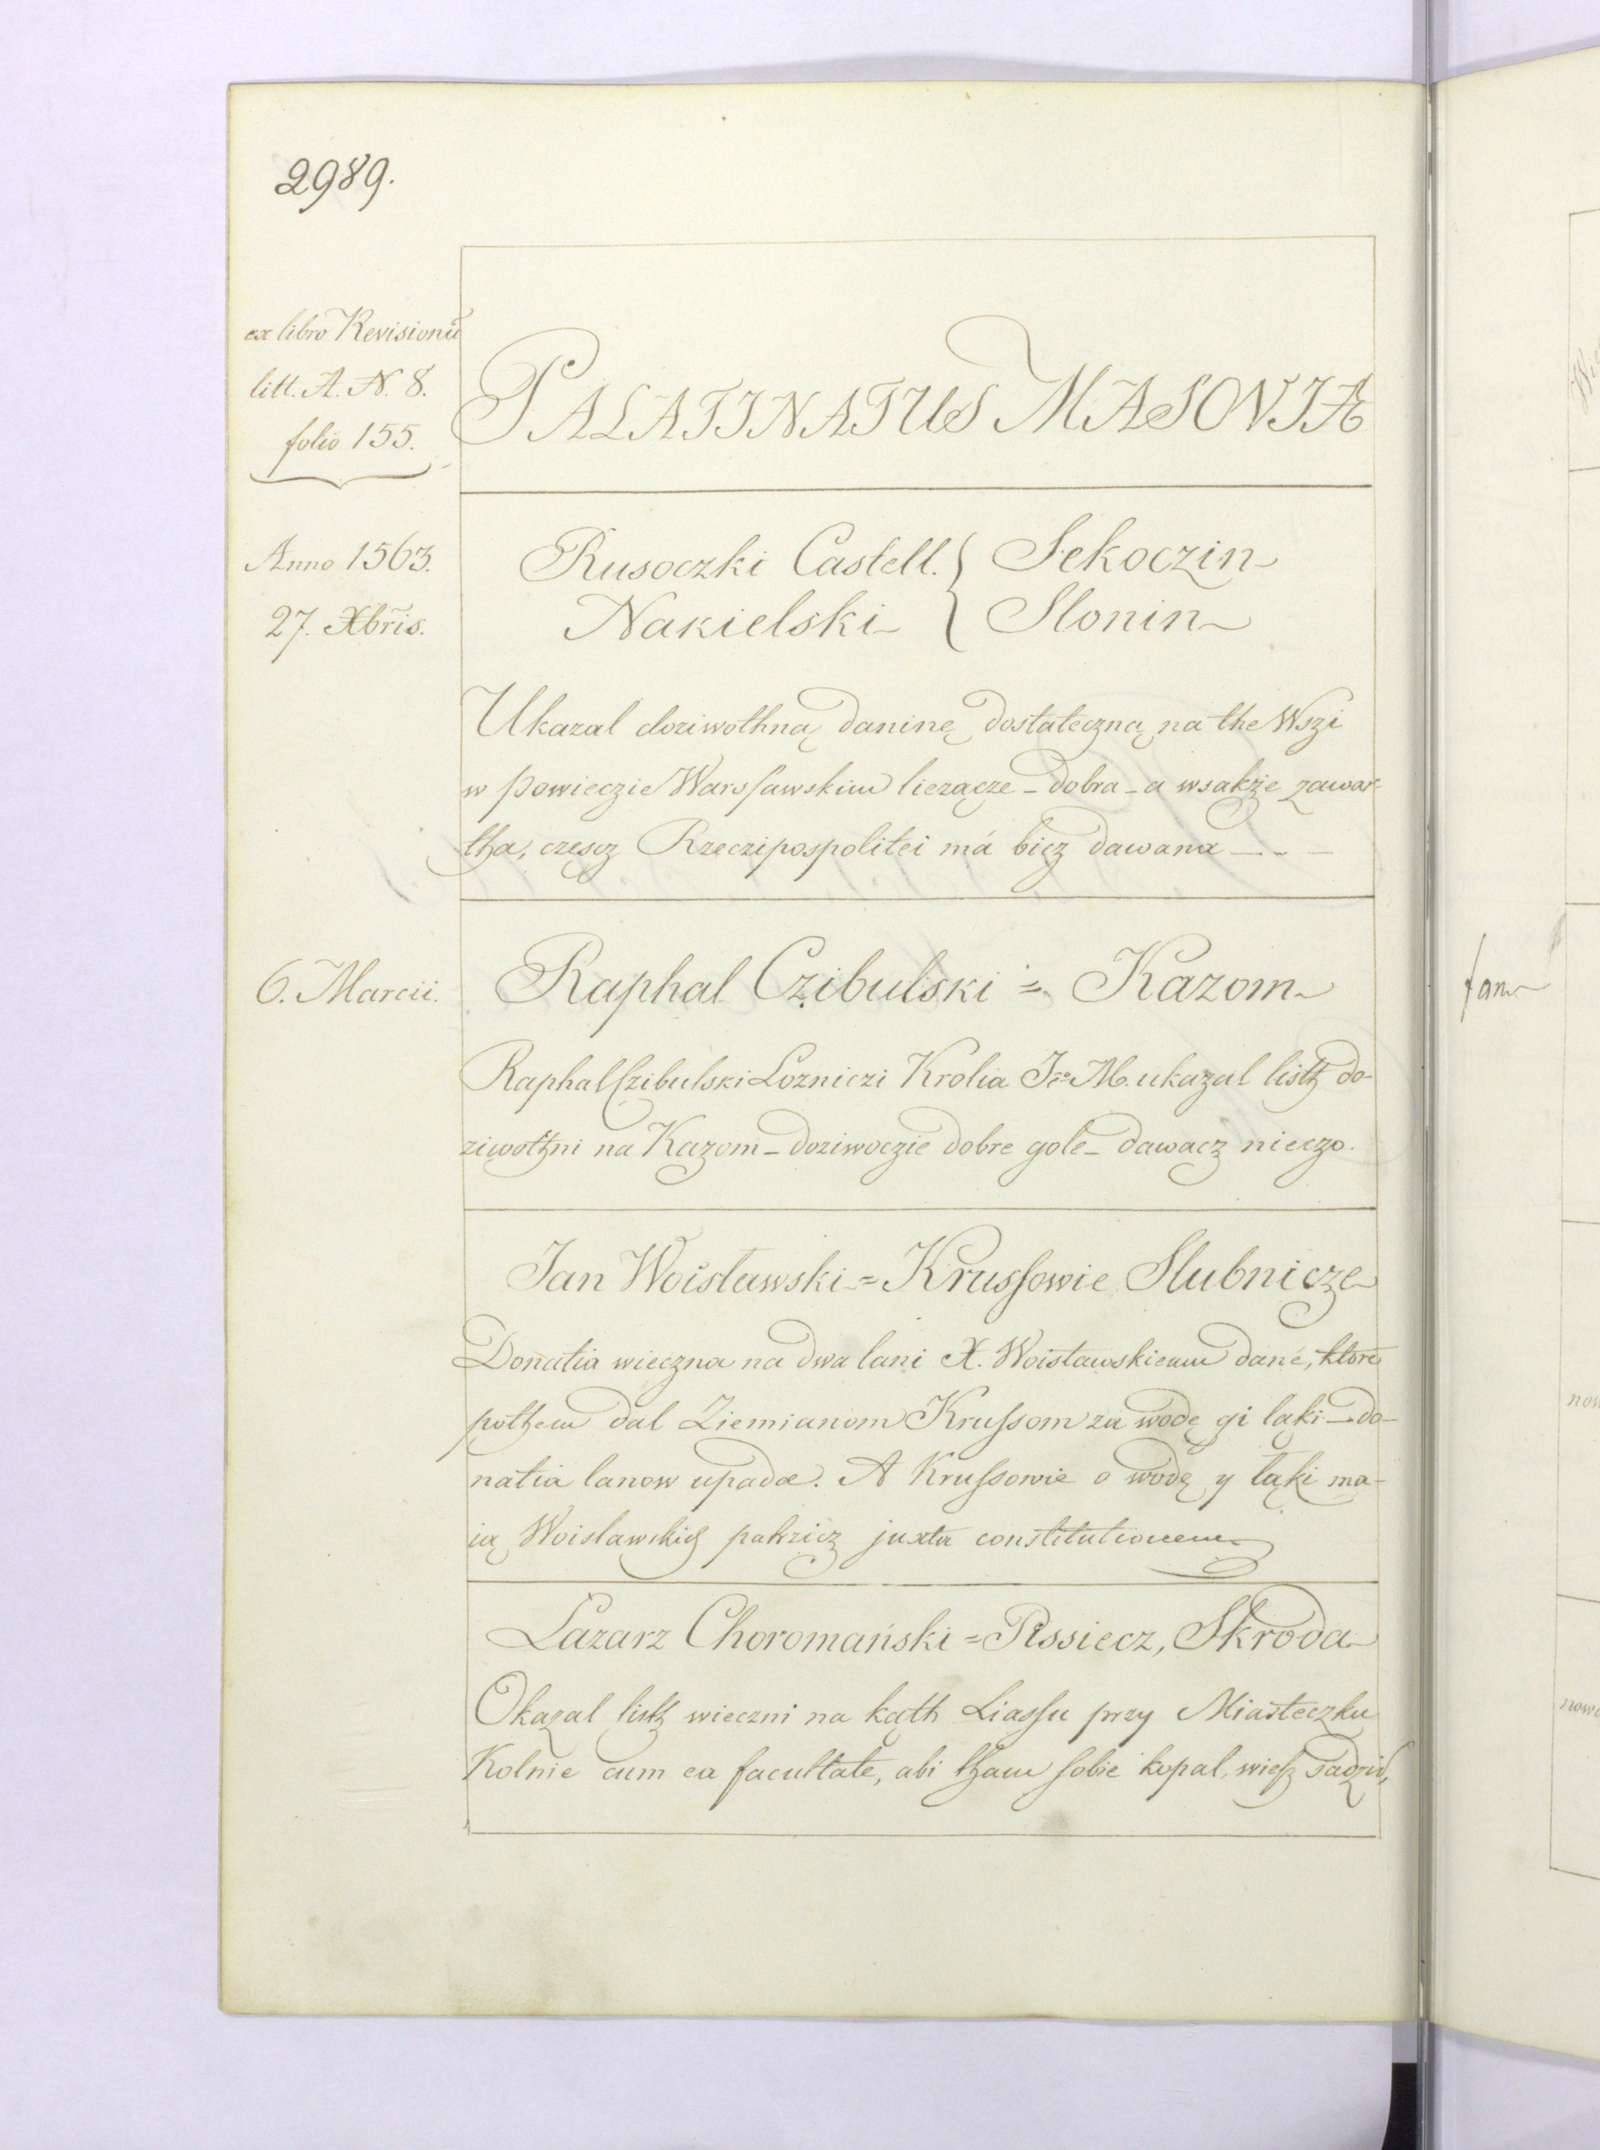 2989.
ex libro Revisionū
litt. A. N. 8.
folio 155.
PALATINATUS MASOVIÆ
Anno 1563.
27. Xbris.
Rusoczki Castell. { Sekoczin
Nakielski { Slonin
Ukazal doziwothną daninę dostateczną na the Wszi
w powieczie Warsſawskim liezącze - dobra - a wsakże zawar-
tha, częscz Rzeczipospolitei má bicz dawana - - -
6. Marcii.
Raphal Czibulski = Kazom
Raphal Czibulski Lozniczi Krolia Je° M. ukazal listh do-
ziwothni na Kazom - doziwoczie dobre gole - dawacz nieczo.
Jan Woisławski = Krusſowie Slubnicze
Donatia wieczna na dwa lani X. Woisławskiemu dane, ktore
pothem dal Ziemianom Kruſsom za wodę gi ląki - do-
natia lanow upada. A Kruſsowie o wodę y łąki ma-
ią Woislawskich patrzicz juxta constitutionem
Lazarz Choromański = Pissiecz, Skroda
Okazal listh wieczni na kąth Liasſu przy Miasteczku
Kolnie cum ea facultate, abi tham ſobie kopal, wieſz sadził,
fam
now
nowo